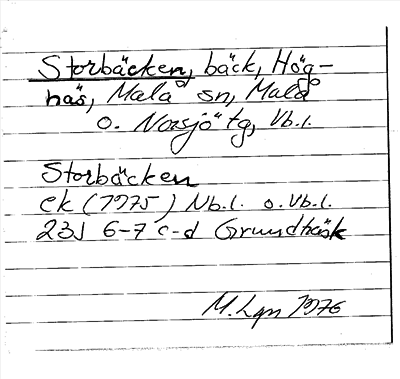 Storbäcken, bäck, Hög-
näs, Malå sn, Malå
o. Norsjö tg, Vb.l.
Storbäcken
ek (1975) Nb.l. o. Vb.l.
23J 6-7 c-d Grundträsk
M. Lgn 1976